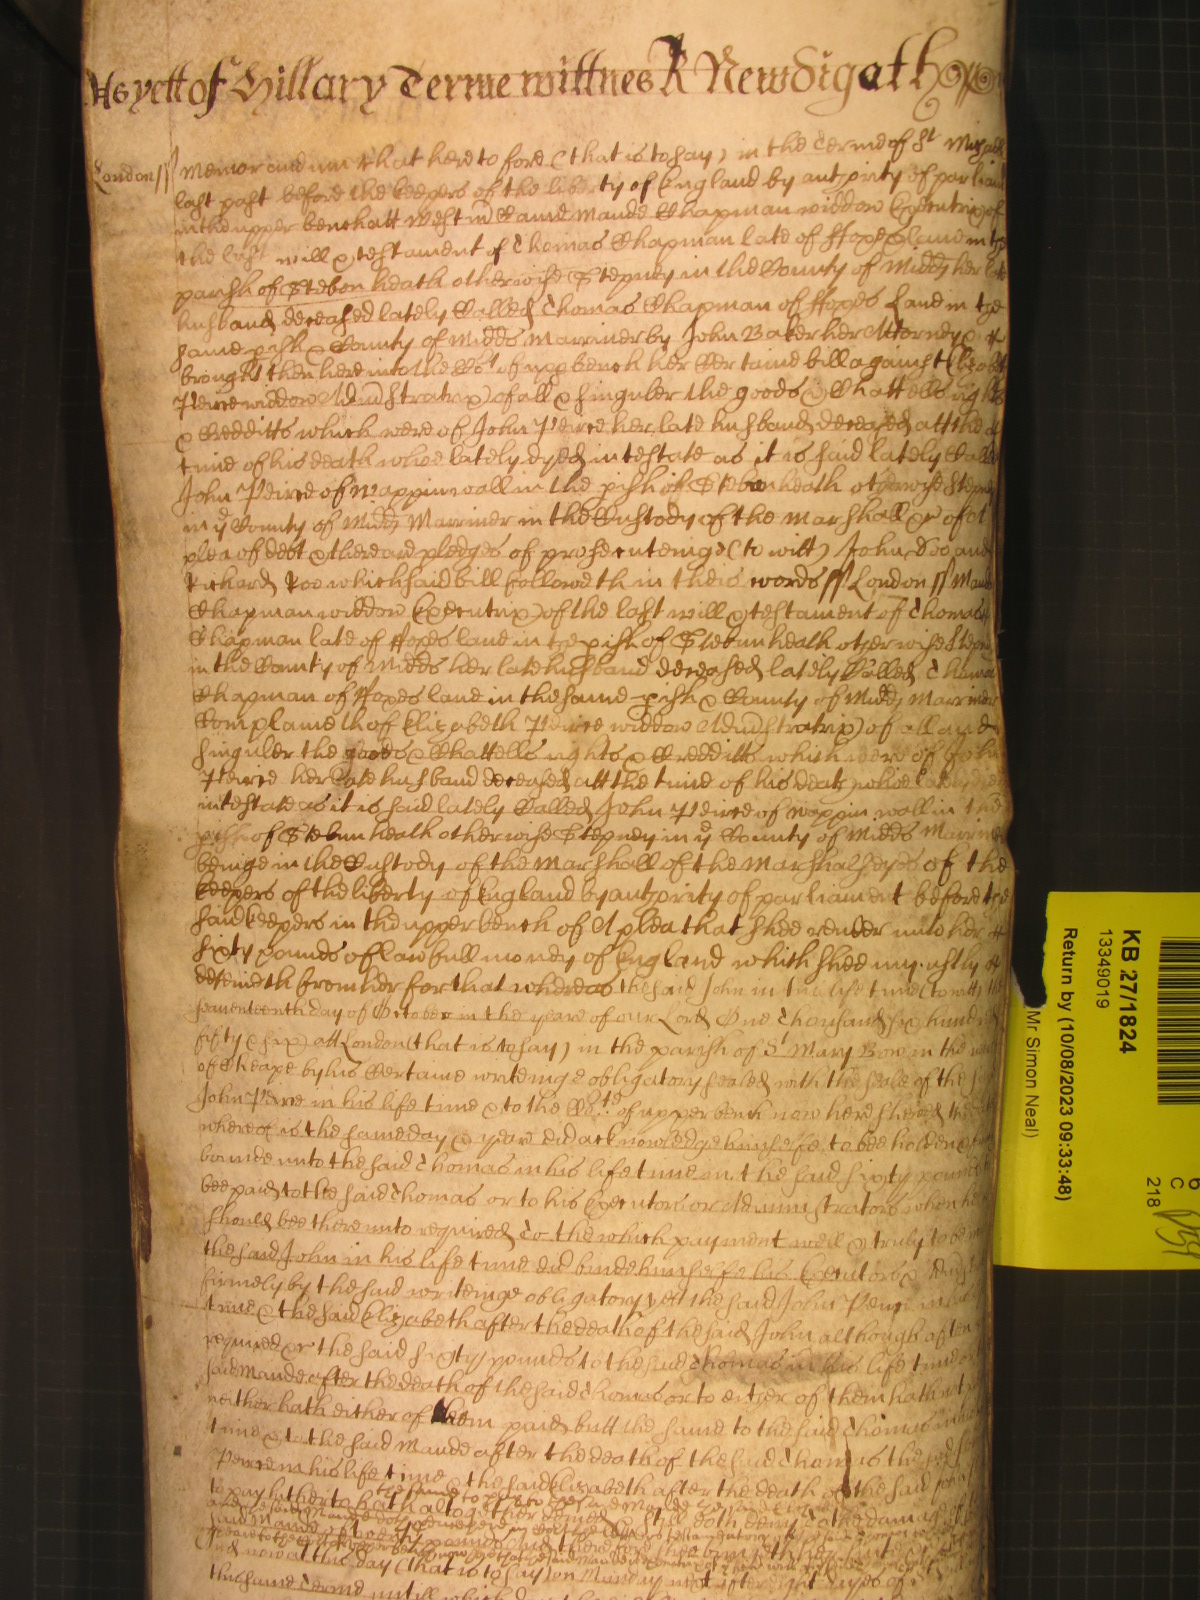 As yett of Hillary Terme wittnes R Newdigath
London// Memorandum that heretofore (that is to say) in the Terme of St Michaell
last past before the keepers of the liberty of England by authority of parliam
in the upper bench att Westm Came Maude Chapman widdow Executrix of
the last will & testament of Thomas Chapman late of ffoxes lane in the
parish of Stebonheath otherwise Stepney in the County of Midds her late
husband deceased lately Called Thomas Chapman of ffoxes Lane in the
same pish & County of Midds Marriner by John Baker her Attorney &
brought then here into the Crt of upp bench her Certaine bill against Elizabeth
Peirce widdow Administratrix of all & singuler the goods & Chattells rights
& Credditts which were of John Peirce her late husband deceased att the
time of his death whoe lately dyed intestate as it is said lately Called
John Peirce of Wappin wall in the pish of Stebonheath otherwise Stepney
in ye County of Midds Marriner in the Custody of the Marshall &c of a
plea of debt & there are pledges of prosecuteinge (to witt) John Doo and
Richard Roo which said bill followeth in theis words// London// Maude
Chapman widdow Executrix of the last will & testament of Thomas
Chapman late of ffoxes lane in the pish of Stebunheath otherwise Stepney
in the County of Midds her late husband deceased lately Called Thomas
Chapman of ffoxes lane in the same pish & County of Midds Marriner
Complaineth of Elizabeth Peirce widdow Administratrix of all and
singuler the goods & Chattells rights & Credditts which were of John
Peirce her late husband deceased att the time of his death whoe lately dyed
intestate as it is said lately Called John Peirce of Wappin wall in the
pish of Stebunheath otherwise Stepney in ye County of Midds Marriner
beinge in the Custody of the Marshall of the Marshalseyes of the
keepers of the liberty of England by authority of parliament before the
said keepers in the upper bench of A plea that shee render unto her
sixty pounds of lawfull money of England which shee unjustly
deteineth from her for that whereas the said John in his life time (to witt) the
seaventeenth day of October in the yeare of our Lord One Thousand six hundred
fifty & six att London (that is to say) in the parish of St Mary Bow in the ward
of Cheape by his Certaine writeinge obligatory sealed with the seale of the said
John Peirce in his life time & to the Crt of upper bench now here shewed the date
whereof is the same day & yeare did acknowledge himselfe to bee holden &
bounde unto the said Thomas in his life time in the said sixty pounds
bee paid to the said Thomas or to his Executors or Administrators when hee
should bee thereunto required To the which payment well & truly to be
the said John in his life time did binde himselfe his Executors &
firmely by the said writeinge obligatory yet the said John Peirce in his
time & the said Elizabeth after the death of the said John although often
required &c the said sixty pounds to the said Thomas in his life time
said Maude after the death of the said Thomas or to either of them hath not
neither hath either of them paid butt the same to the said Thomas in his
time & to the said Maude after the death of the said Thomas the said John
Peirce in his life time & the said Elizabeth after the death of the said John
to pay hitherto hath altogether denied still doth deny to the damage of
said Maude of twenty pounds And therefore shee bringeth her
And now at this day (that is to say) on Munday next after eight dayes of St
this same Terme untill which
KB 27/1824
13349019
Return by (10/08/2023 09:33:48)
Mr Simon Neal)
6
C
218